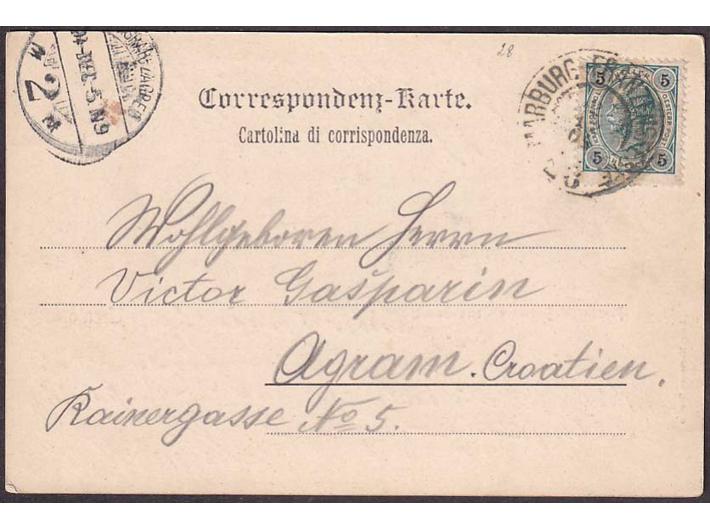 28
ZAGREB
2
5 N9
MARBURG
5 5
5 5
Correspondenz-Karte.
Cartolina di corrispondenza.
Wohlgeboren Herrn
Victor Gašparin
Agram. Croatien.
Rainergasse No 5.